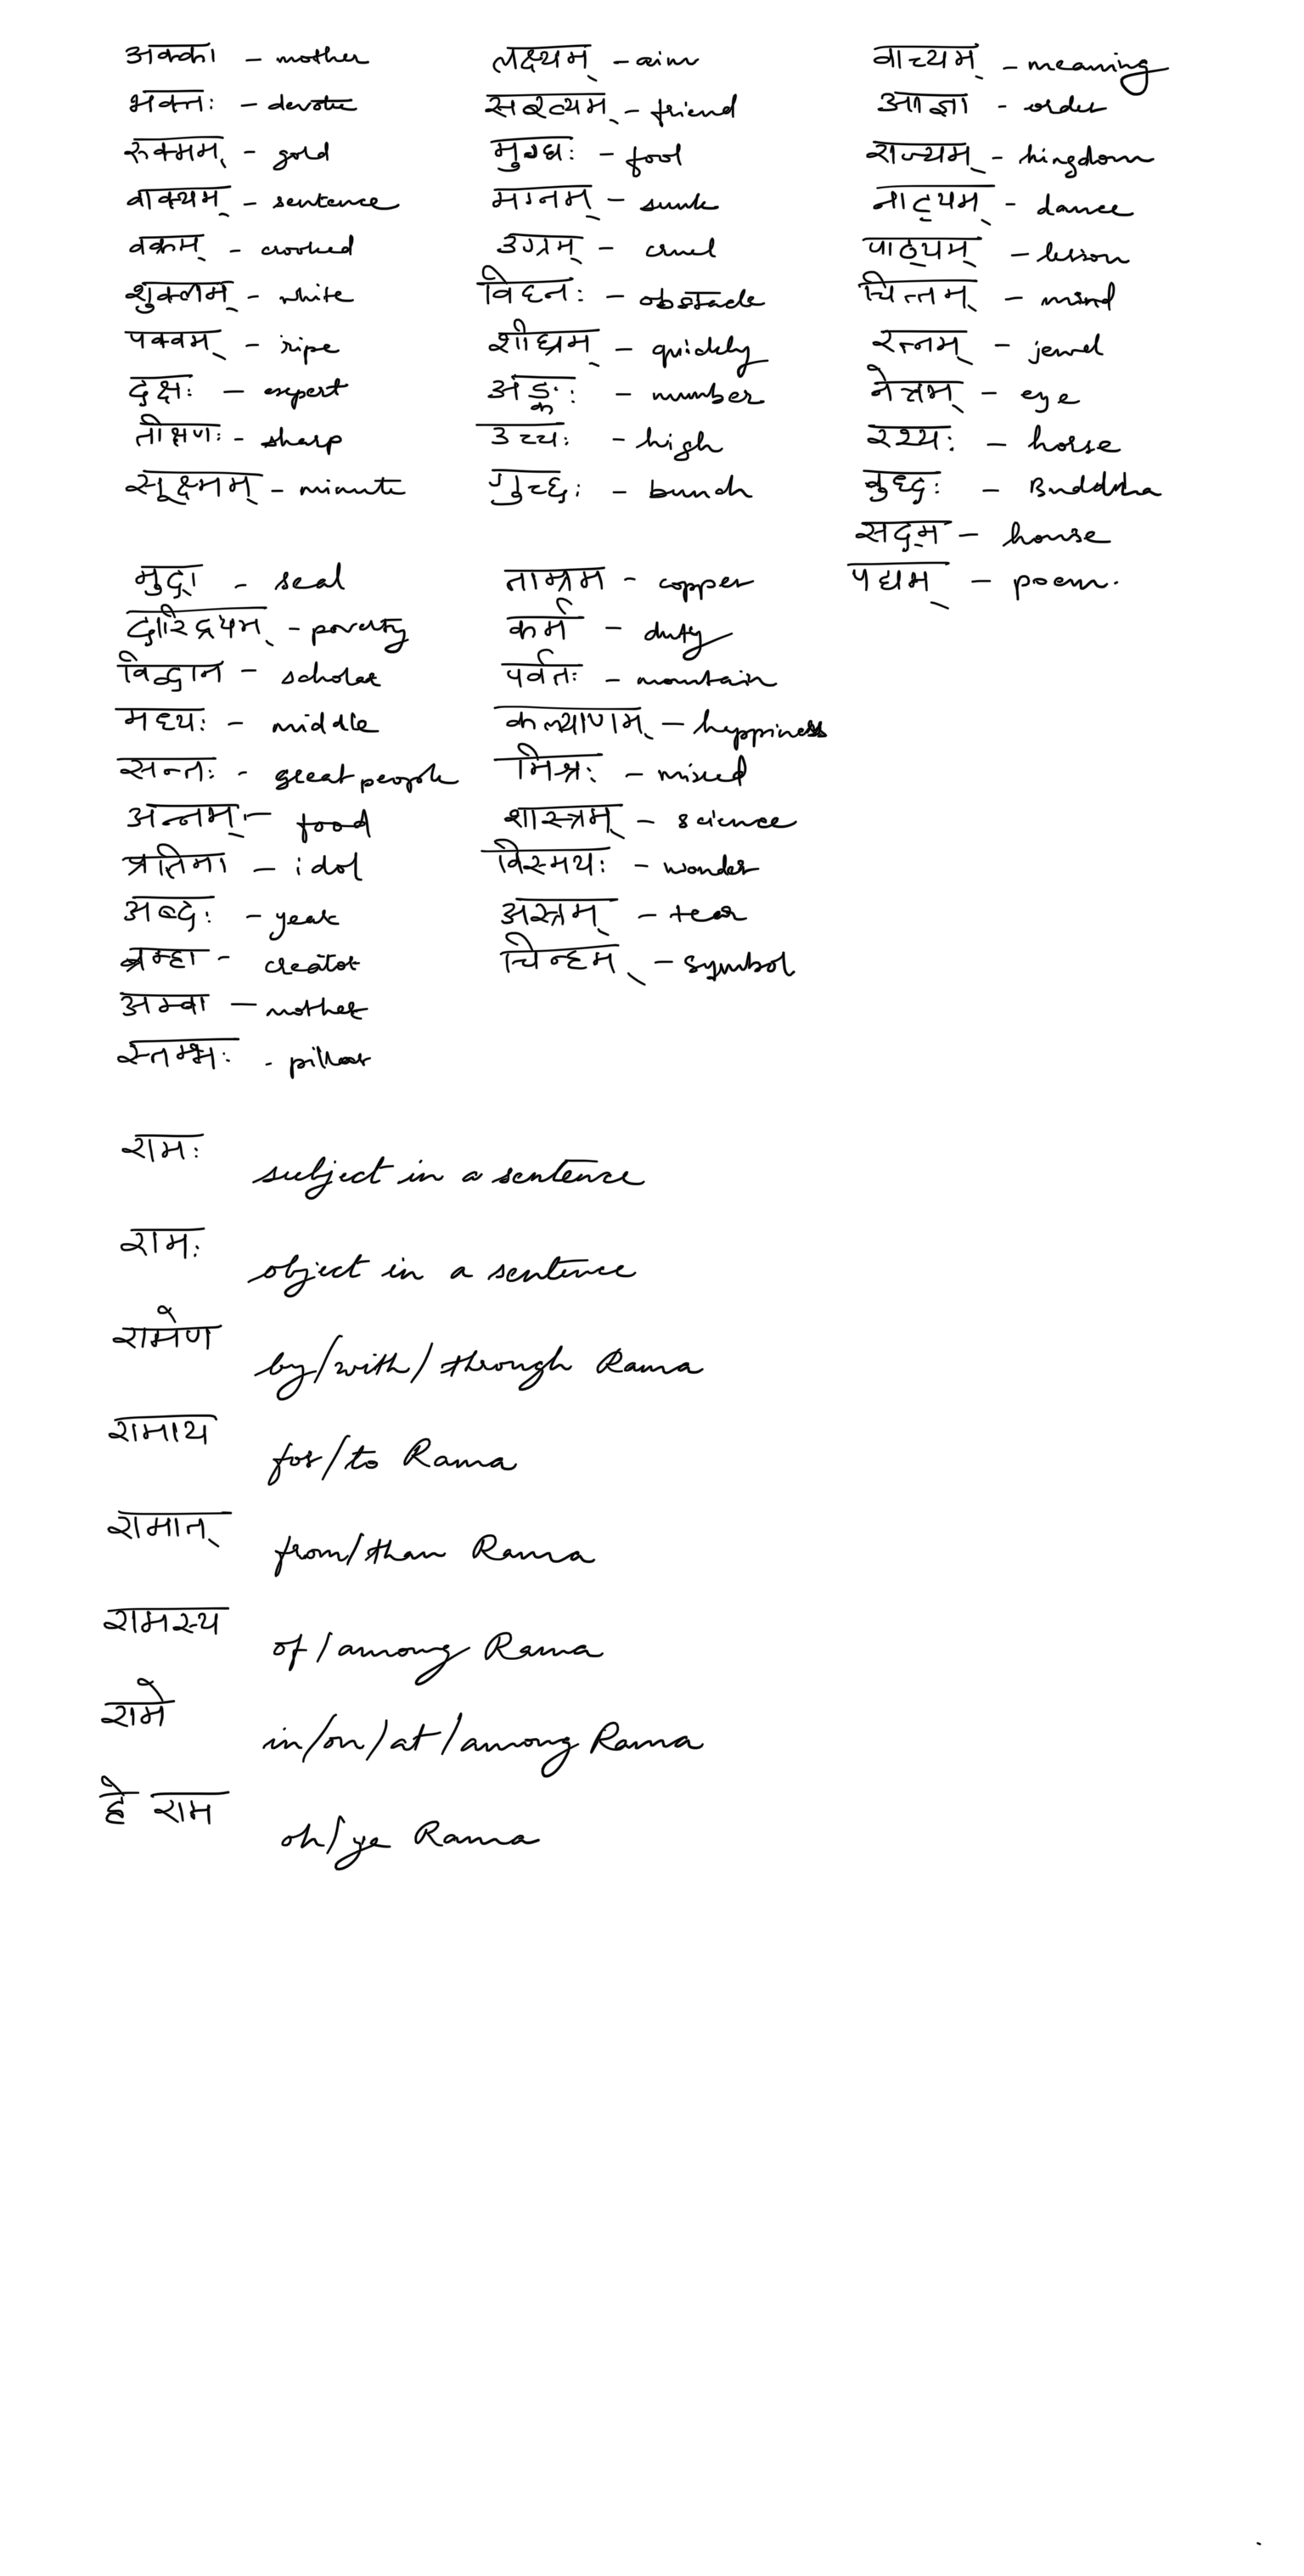 अक्का - mother
भक्तः - devotee
रुक्मम् - gold
वाक्यम् - sentence
वक्रम् - crooked
शुक्लम् - white
पक्वम् - ripe
दक्षः - expert
तीक्षणः - sharp
सूक्ष्मम् - minute
लक्ष्यम् - aim
सख्यम् - friend
मुग्धः - fool
मग्नम् - sunk
उग्रम् - cruel
विघ्नः - obstacle
शीघ्रम् - quickly
अङ्कः - number
उच्चः - high
गुच्छः - bunch
वाच्यम् - meaning
आज्ञा - order
राज्यम् - kingdom
नाट्यम् - dance
पाठ्यम् - lesson
चित्तम् - mind
रत्नम् - jewel
नेत्रम् - eye
रथ्यः - horse
बुध्दः - Buddha
सद्म - house
पद्यम् - poem.
मुद्रा - seal
दारिद्रयम् - poverty
विद्वान - scholar
मध्यः - middle
सन्तः - great people
अन्नम् - food
प्रतिमा - idol
अब्दः - year
ब्रम्हा - creator
अम्बा - mother
स्तम्भः - pillar
ताम्रम - copper
कर्म - duty
पर्वतः - mountain
कल्याणम् - happiness
मिश्रः - mixed
शास्त्रम् - science
विस्मयः - wonder
अस्त्रम् - tear
चिन्हम् - symbol
रामः subject in a sentence
रामः object in a sentence
रामेण by/with/through Rama
रामाय for/to Rama
रामात् from/than Rama
रामस्य of/among Rama
रामे in/on/at/among Rama
हे राम oh/ye Rama